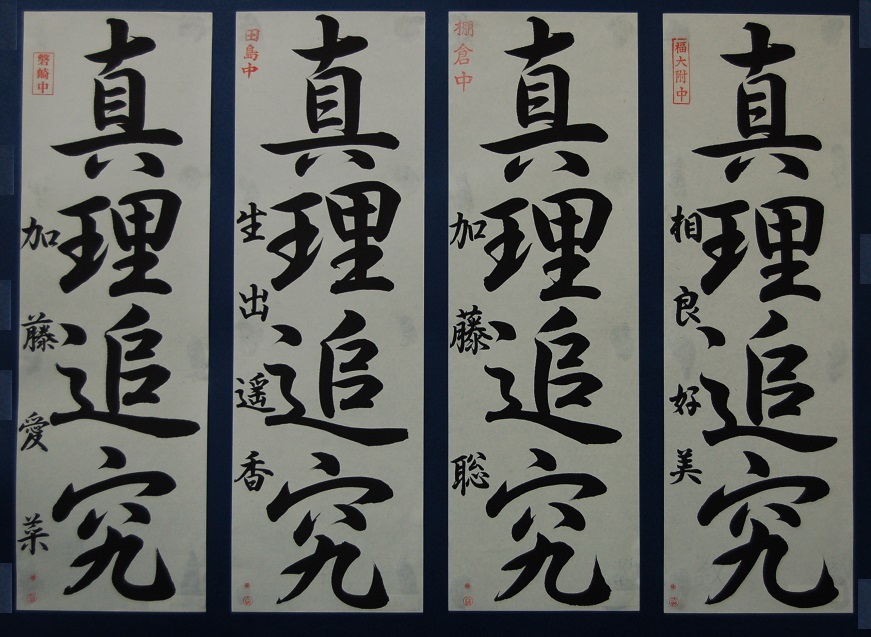 磐崎中
真理追究
加藤愛菜
田島中
真理追究
生出遥香
棚倉中
真理追究
加藤聡
福大附中
真理追究
相良好美